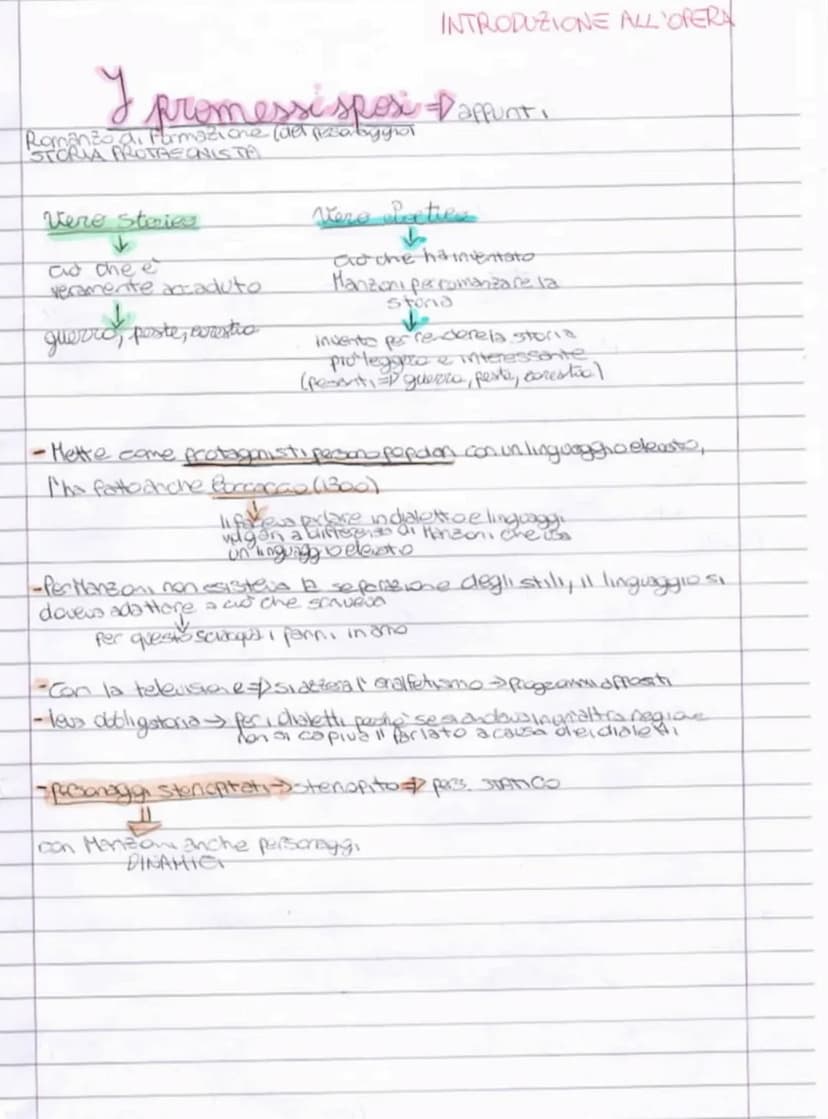 INTRODUZIONE ALL'OPERA
I promessi sposi => appunti
Romanzo di formazione (del personaggio)
STORIA PROTAGONISTA
Vero storico
Vero Poetico
↓
↓
ciò che è
veramente accaduto
ciò che ha inventato
Manzoni per romanzare la
storia
↓
↓
guerra, peste, carestia
invento per rendere la storia
più leggera e interessante
(pesanti => guerra, peste, carestia)
- Mette come protagonisti persone popolari con un linguaggio elevato,
l'ha fatto anche Boccaccio (1300)
↓
li faceva parlare in dialetto e linguaggi
volgari a differenza di Manzoni che usa
un linguaggio elevato
- Per Manzoni non esisteva la separazione degli stili, il linguaggio si
doveva adattare a ciò che scriveva
↓
per questo sciacquò i panni in arno
- Con la televisione => si azzera l'analfetismo → programmi apposti
- leva obbligatoria → per i dialetti perché se si andava in un'altra regione
non si capiva il parlato a causa dei dialetti
- personaggi steriopitati → steriopito => pers. STATICO
⇓
con Manzoni anche personaggi
DINAMICI